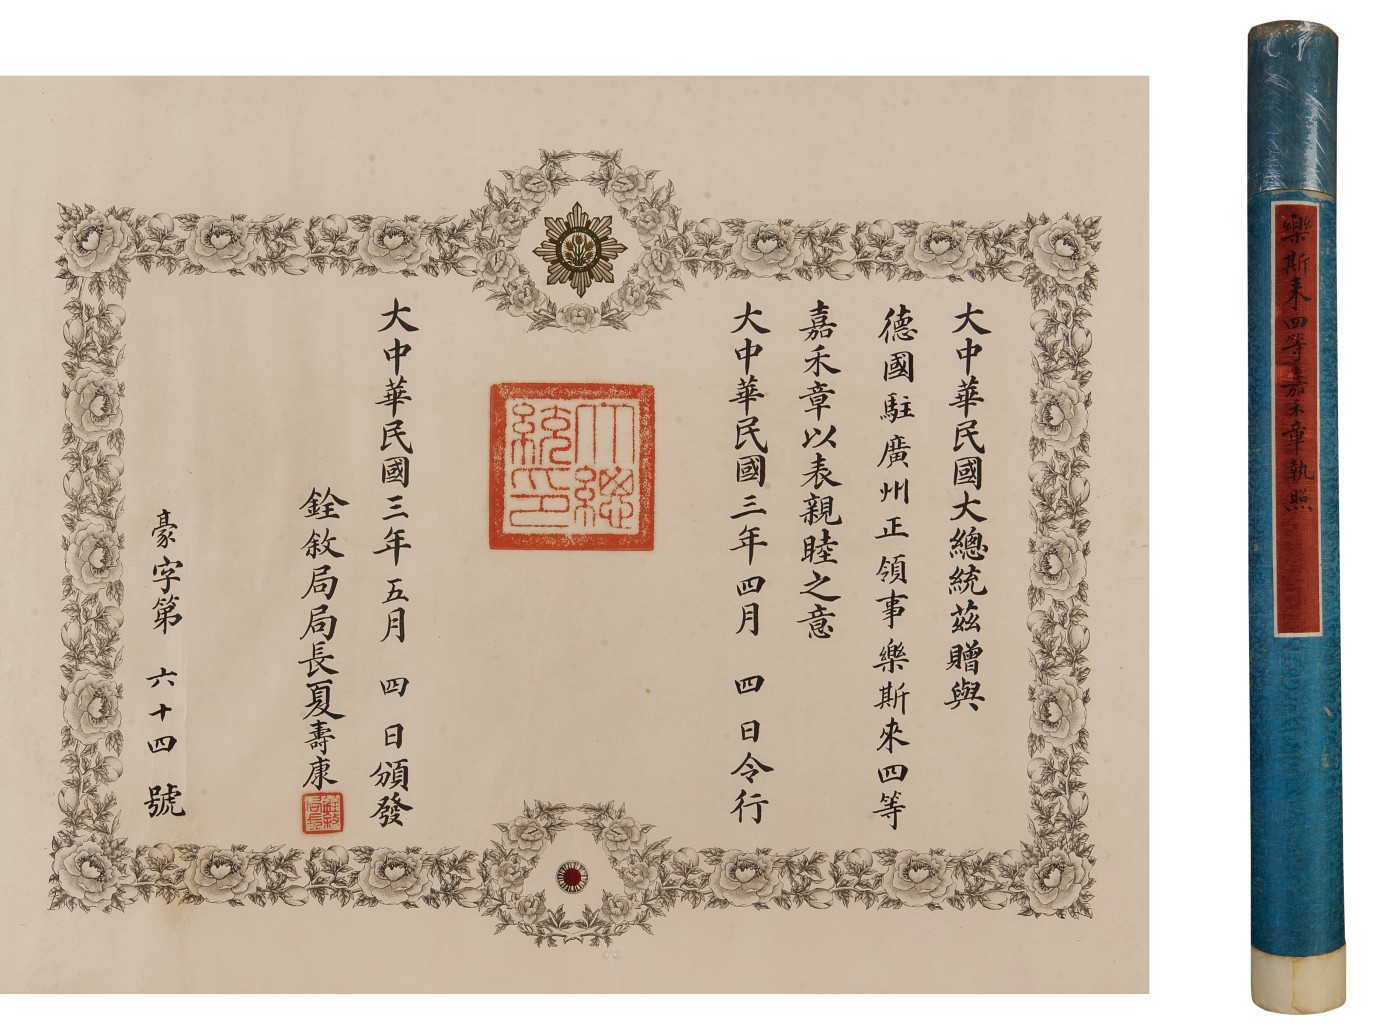 大中華民國大總統茲贈與
德國駐廣州正領事樂斯來四等
嘉禾章以表親睦之意
大中華民國三年四月四日令行
大總統印
大中華民國三年五月四日頒發
銓敘局局長夏壽康
銓敘局長
豪字第六十四號
樂斯來四等嘉禾章執照